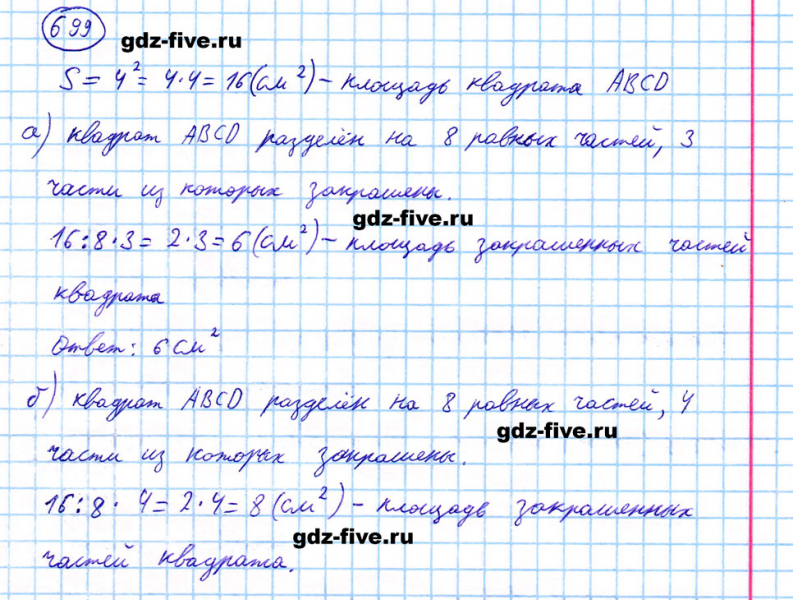 699
gdz-five.ru
S = 4² = 4·4 = 16(см²) – площадь квадрата ABCD
а) квадрат ABCD разделён на 8 равных частей, 3
части из которых закрашены.
gdz-five.ru
16:8·3 = 2·3 = 6(см²) – площадь закрашенных частей
квадрата
Ответ: 6 см²
б) квадрат ABCD разделён на 8 равных частей, 4
gdz-five.ru
части из которых закрашены.
16:8· 4 = 2·4 = 8 (см²) – площадь закрашенных
gdz-five.ru
частей квадрата.